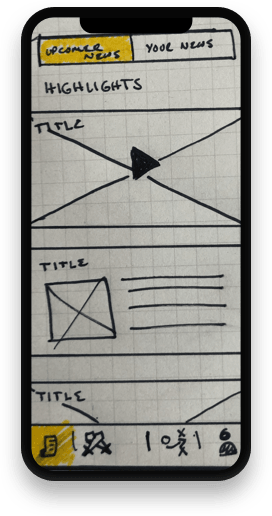 UPCOMER
NEWS
YOUR NEWS
HIGHLIGHTS
TITLE
TITLE
TITLE